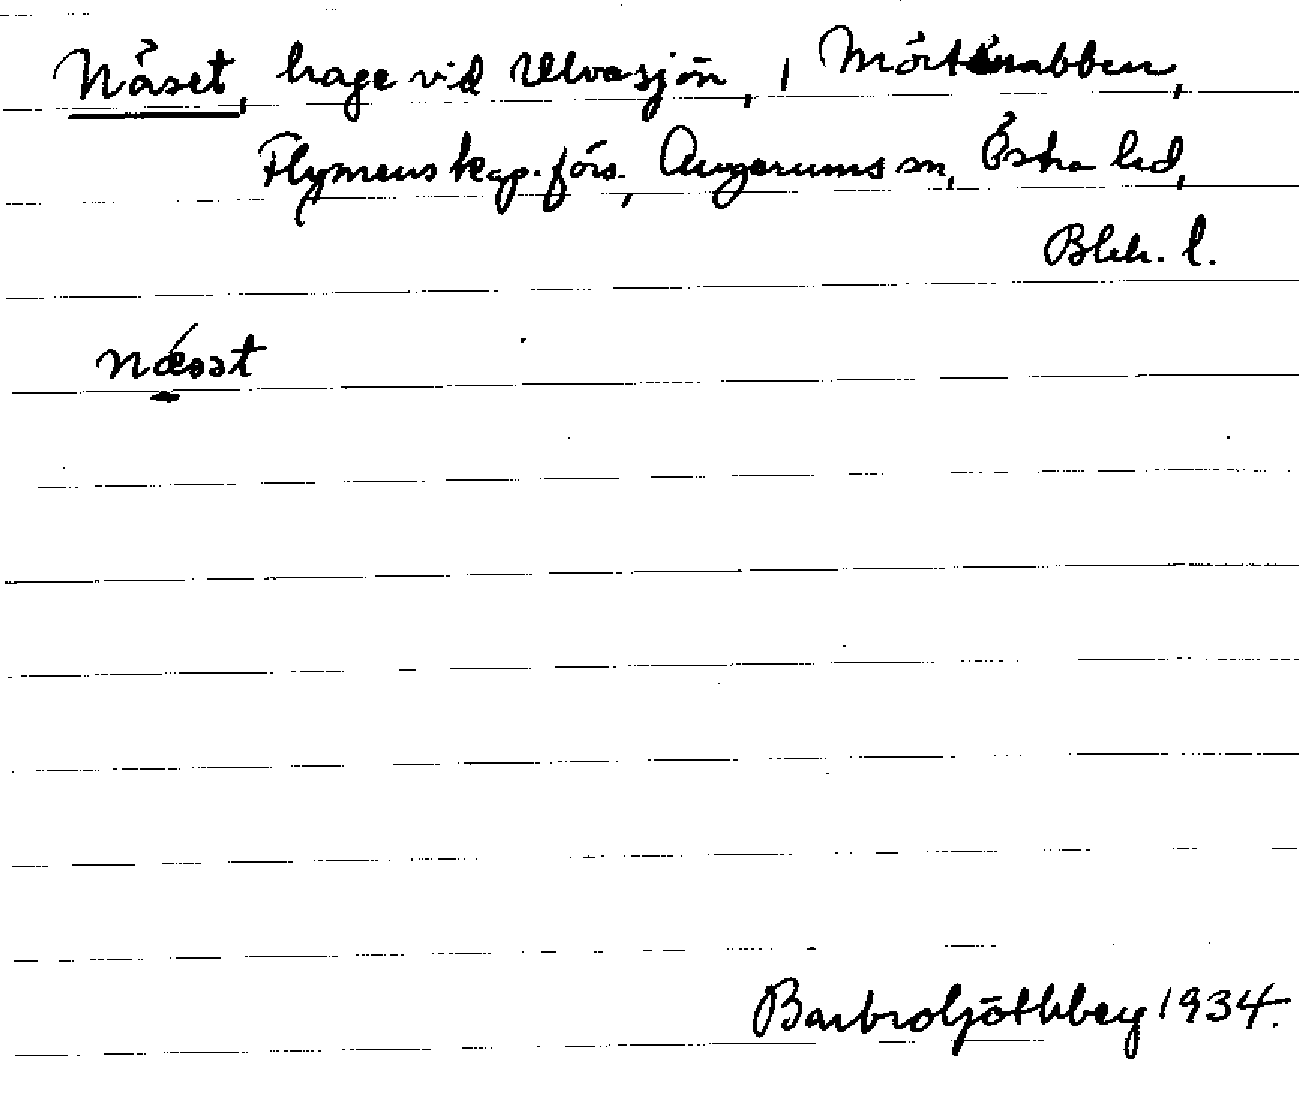 Näset, hage vid Ulvasjön, i Mörtnabben,
Flymens kap.förs., Augerums sn, Östra hd,
Blek. l.
næsət
Barbro Göthberg 1934.